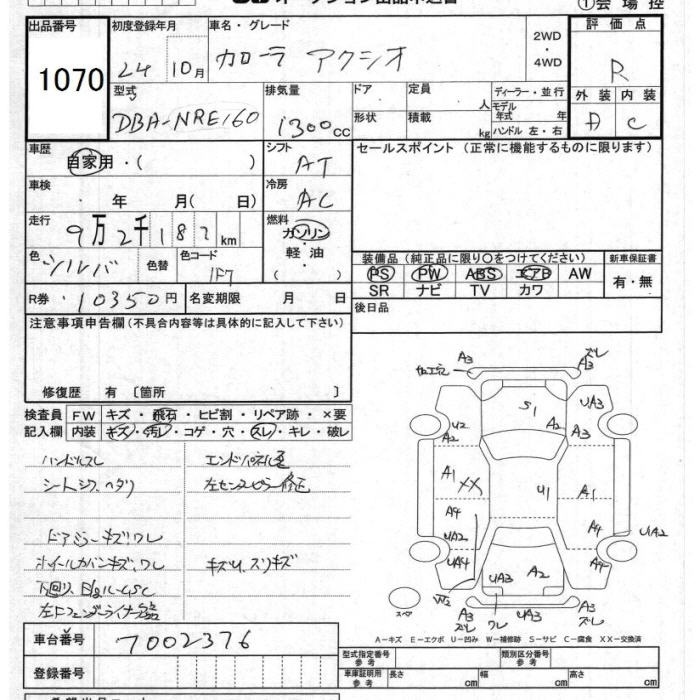 オークション出品申込書
①会場控
出品番号 初度登録年月 車名・グレード 2WD・4WD 評価点
1070 24 10月 カローラ アクシオ R
型式 排気量 ドア 定員 人 ディーラー・並行 外装 内装
DBA-NRE160 1300cc 形状 積載 kg モデル年式 年 ハンドル 左・右 A C
車歴 自家用・( ) シフト AT セールスポイント (正常に機能するものに限ります)
車検 年 月( 日) 冷房 AC
走行 9万2千182km 燃料 ガソリン・軽油 ( )
色 シルバ 色替 色コード 1F7
装備品 (純正品に限り○をつけてください) 新車保証書
PS PW ABS エアB AW 有・無
SR ナビ TV カワ
R券 10350円 名変期限 月 日 後日品
注意事項申告欄(不具合内容等は具体的に記入して下さい)
修復歴 有 〔箇所 〕
検査員 FW キズ・飛石・ヒビ割・リペア跡・×要
記入欄 内装 キズ・汚レ・コゲ・穴・スレ・キレ・破レ
ハンドルスレ エンドパネル歪
シートシワ、ヘタリ 左センターピラー修正
ドアミラーキズ、ワレ
ホイールカバーキズ、ワレ キズU、スリキズ
下回り
左Fフェンダーライナー
A3 A3 ズレ
S1 UA3
U2 A2 A2 A3
A1 XX U1 A1
A4 A4 UA2
UA2
UA4 UA3 A2 A4
W2 ワレ UA3
スペア A3 ズレ A3 ズレ
A-キズ E-エクボ U-凹み W-補修跡 S-サビ C-腐食 XX-交換済
車台番号 7002376
型式指定番号 参考 類別区分番号 参考
登録番号 車庫証明用 参考 長さ cm 幅 cm 高さ cm